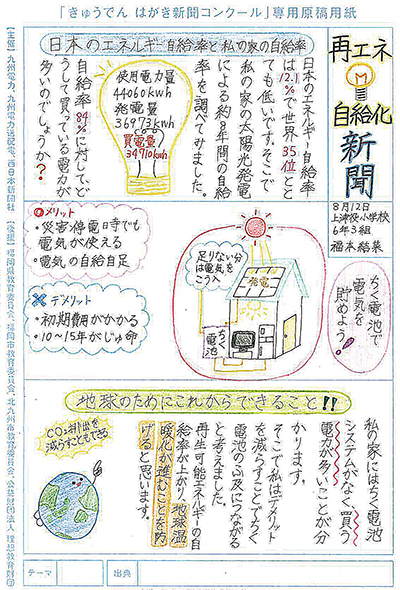 「きゅうでん はがき新聞コンクール」専用原稿用紙
再エネ
自給化
新聞
8月12日
上津役小学校
6年3組
福本結菜
日本のエネルギー自給率と私の家の自給率
日本のエネルギー自給率
は12.1%で世界35位とと
ても低いです。そこで
私の家の太陽光発電
による約8年間の自給
率を調べてみました。
使用電力量
44060kwh
発電量
36973kwh
買電量
34910kwh
自給率84%に対して、ど
うして買っている電力が
多いのでしょうか?
メリット
・災害、停電時でも
電気が使える
・電気の自給自足
デメリット
・初期費用がかかる
・10~15年がじゅ命
足りない分
は電気を
こう入
発電
ちく
電池
ちく電池で
電気を
貯めよう!
地球のためにこれからできること!!
私の家にはちく電池
システムがなく、買う
電力が多いことが分
かります。
そこで私はデメリット
を減らすことでちく
電池のふ及につながる
と考えました。
再生可能エネルギーの自
給率が上がり、地球温
暖化が進むことを防
げると思います。
CO2排出を
減らすこともできる
テーマ
出典
【主催】九州電力、九州電力送配電、西日本新聞社 【後援】福岡県教育委員会、福岡市教育委員会、北九州市教育委員会、公益財団法人 理想教育財団